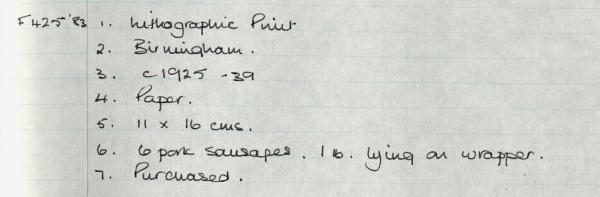 F425'83 1. Lithographic Print
2. Birmingham.
3. c1925 -39
4. Paper.
5. 11 x 16 cms.
6. 6 pork sausages. 1 lb. lying on wrapper.
7. Purchased.